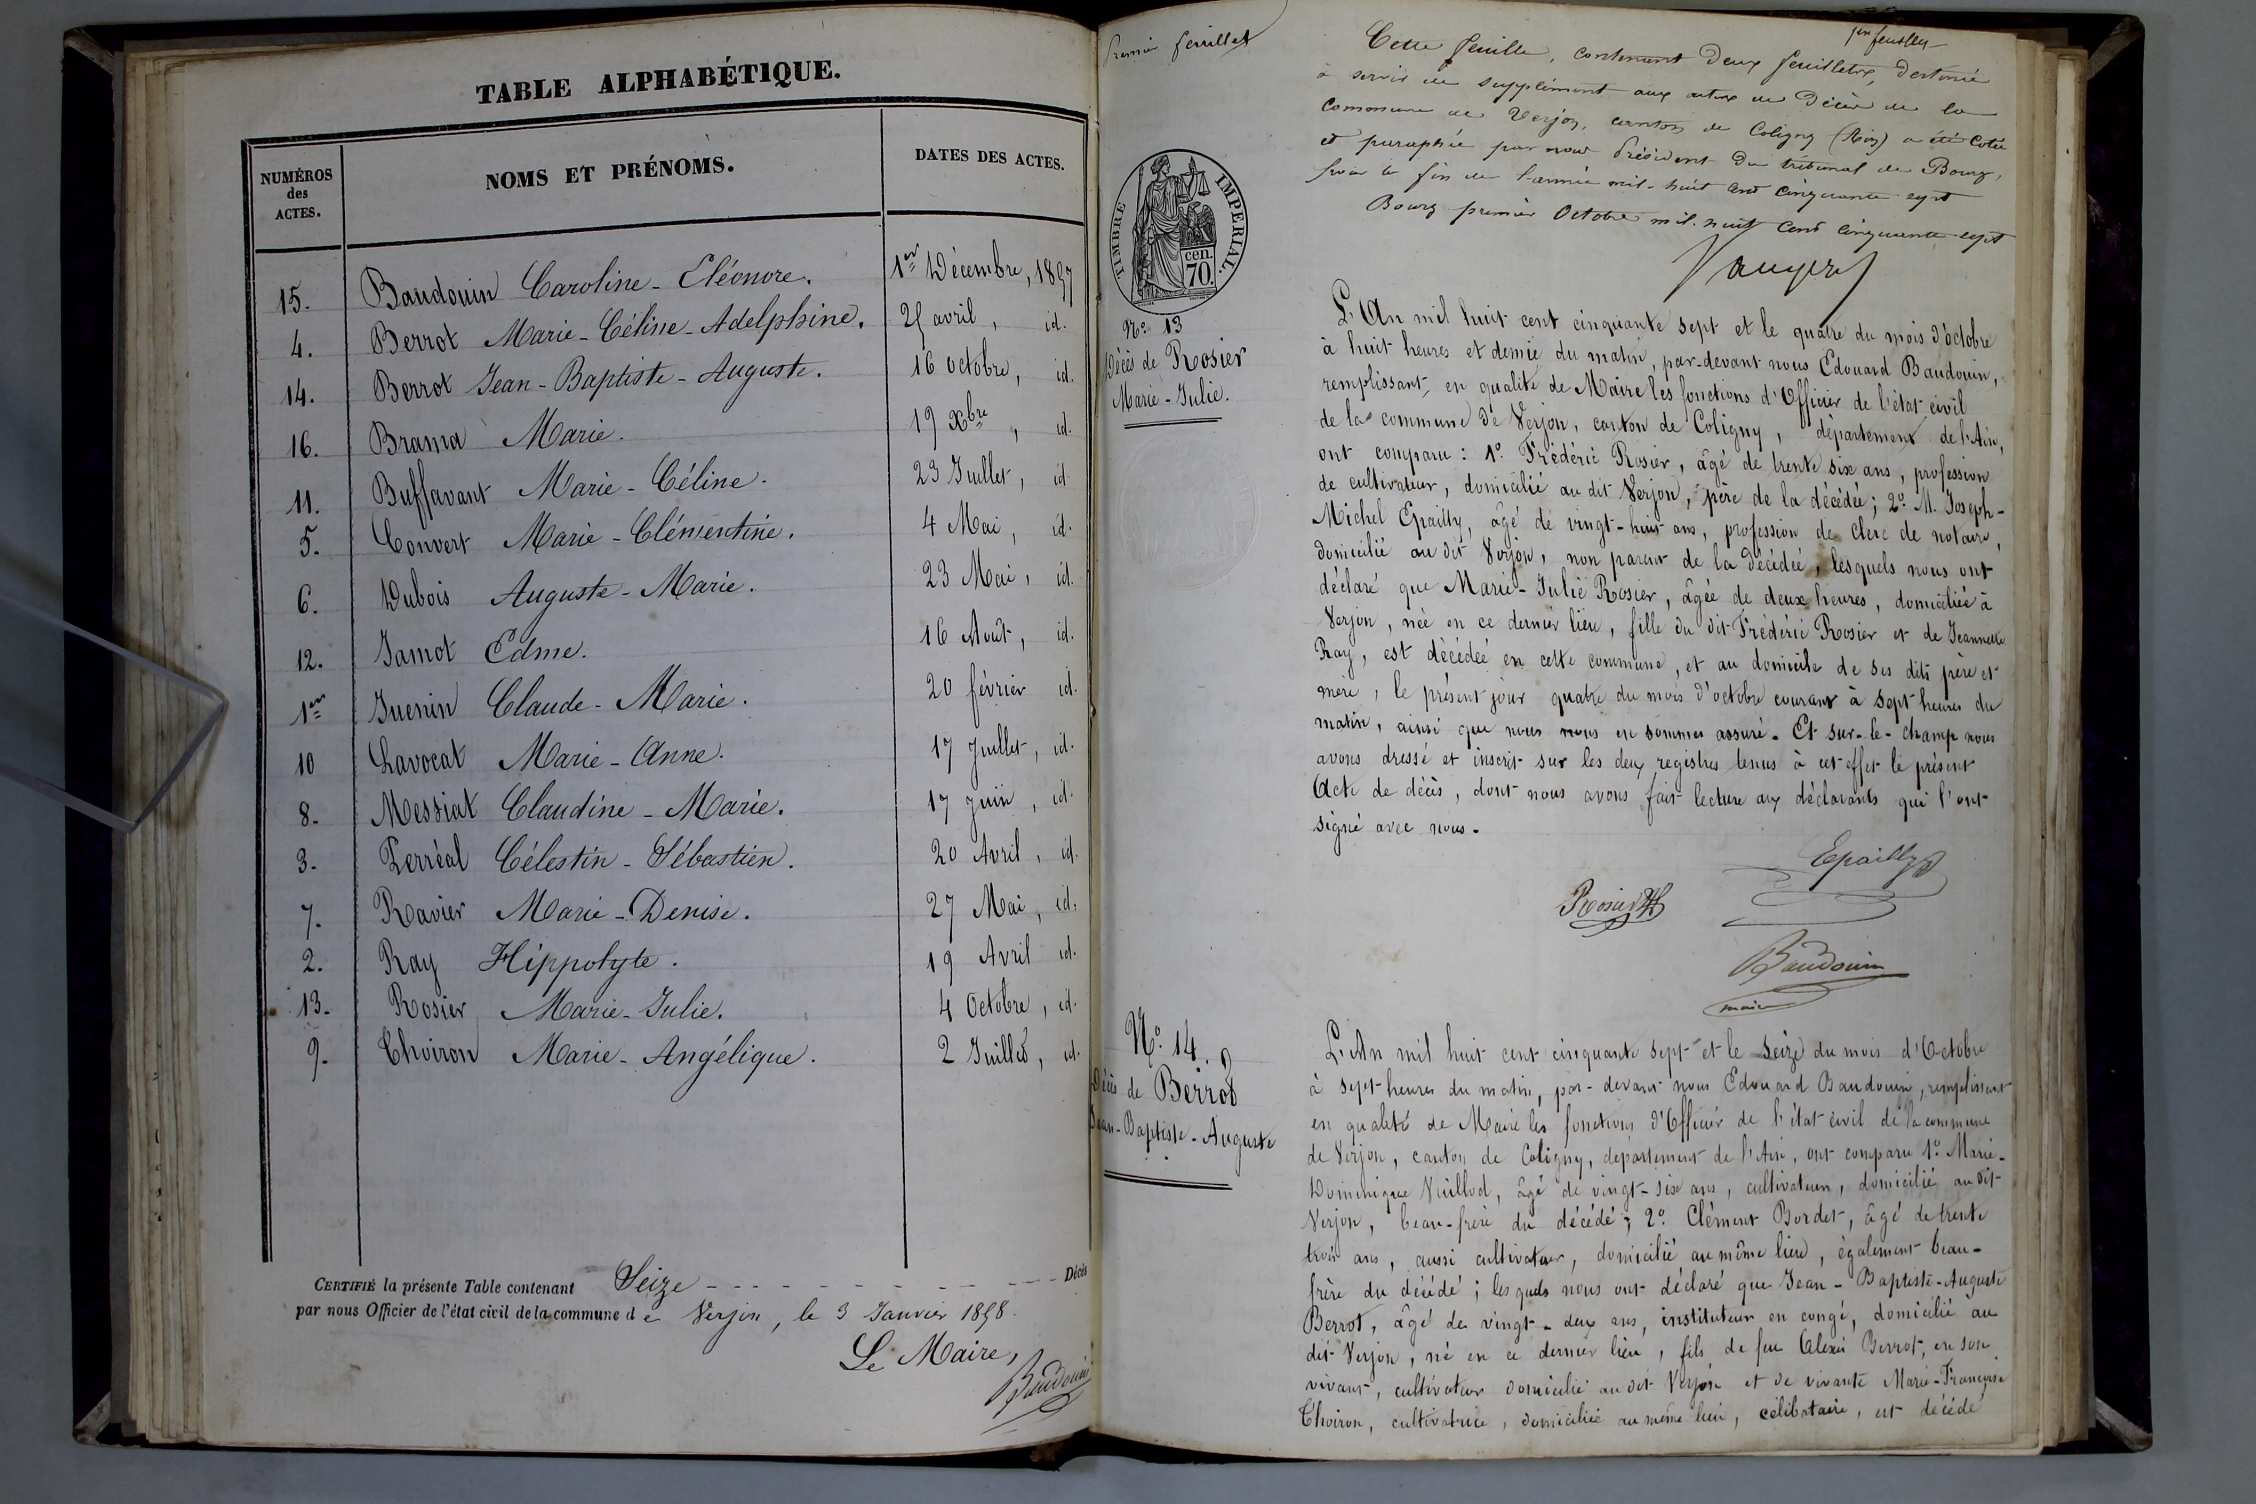 TABLE ALPHABÉTIQUE.
NUMÉROS des ACTES.
NOMS ET PRÉNOMS.
DATES DES ACTES.
15. Baudouin Caroline-Eléonore. 1er Décembre, 1857
4. Berrot Marie-Céline-Adelphine. 25 avril, id.
14. Berrot Jean-Baptiste-Auguste. 16 octobre, id.
16. Brama Marie. 19 Xbre, id.
11. Buffavant Marie-Céline. 23 Juillet, id.
5. Convert Marie-Clémentine. 4 Mai, id.
6. Dubois Auguste-Marie. 23 Mai, id.
12. Jamot Edme. 16 Août, id.
1er Juenin Claude-Marie. 20 février id.
10 Lavocat Marie-Anne. 17 Juillet, id.
8. Messiat Claudine-Marie. 17 juin, id.
3. Perréal Célestin-Sébastien. 20 Avril, id.
7. Ravier Marie-Denise. 27 Mai, id.
2. Ray Hippolyte. 19 Avril id.
13. Rosier Marie-Julie. 4 Octobre, id.
9. Thoiron Marie-Angélique. 2 Juillet, id.
CERTIFIÉ la présente Table contenant Seize Décès
par nous Officier de l'état civil de la commune de Verjon, le 3 Janvier 1858.
Le Maire,
Baudouin
Premier feuillet
1er feuillet
Cette feuille, contenant deux feuillets, destinée
à servir de supplément aux actes de Décès de la
commune de Verjon, canton de Coligny (Ain) a été cotée
et paraphée par nous Président du tribunal de Bourg,
pour la fin de l'année mil-huit cent cinquante sept
Bourg premier Octobre mil-huit cent cinquante-sept
TIMBRE IMPÉRIAL.
70 cen.
No 13
Décès de Rosier
Marie-Julie.
L'An mil huit cent cinquante sept et le quatre du mois d'octobre
à huit heures et demie du matin, par-devant nous Edouard Baudouin,
remplissant, en qualité de Maire les fonctions d'Officier de l'état civil
de la commune de Verjon, canton de Coligny, département de l'Ain,
ont comparu : 1o. Frédéric Rosier, âgé de trente six ans, profession
de cultivateur, domicilié au dit Verjon, père de la décédée; 2o. M. Joseph-
Michel Epailly, âgé de vingt-huit ans, profession de clerc de notaire,
domicilié au dit Verjon, non parent de la décédée, lesquels nous ont
déclaré que Marie-Julie Rosier, âgée de deux heures, domiciliée à
Verjon, née en ce dernier lieu, fille du dit Frédéric Rosier et de Jeannette
Ray, est décédée en cette commune, et au domicile de ses dits père et
mère, le présent jour quatre du mois d'octobre courant à sept heures du
matin, ainsi que nous nous en sommes assuré. Et sur-le-champ nous
avons dressé et inscrit sur les deux registres tenus à cet effet le présent
Acte de décès, dont nous avons fait lecture aux déclarants qui l'ont
signé avec nous.
Epailly
Rosier
Baudouin
maire
No. 14.
Décès de Berrot
Jean-Baptiste-Auguste
L'An mil huit cent cinquante sept et le seize du mois d'Octobre
à sept heures du matin, par-devant nous Edouard Baudouin, remplissant
en qualité de Maire les fonctions d'Officier de l'état civil de la commune
de Verjon, canton de Coligny, département de l'Ain, ont comparu 1o. Marie-
Dominique Vuillod, âgé de vingt-six ans, cultivateur, domicilié au dit
Verjon, beau-frère du décédé; 2o. Clément Bordet, âgé de trente
trois ans, aussi cultivateur, domicilié au même lieu, également beau-
frère du décédé; lesquels nous ont déclaré que Jean-Baptiste-Auguste
Berrot, âgé de vingt-deux ans, instituteur en congé, domicilié au
dit Verjon, né en ce dernier lieu, fils de feu Alexis Berrot, en son
vivant, cultivateur domicilié au dit Verjon et de vivante Marie-Françoise
Thoiron, cultivatrice, domiciliée au même lieu, célibataire, est décédé